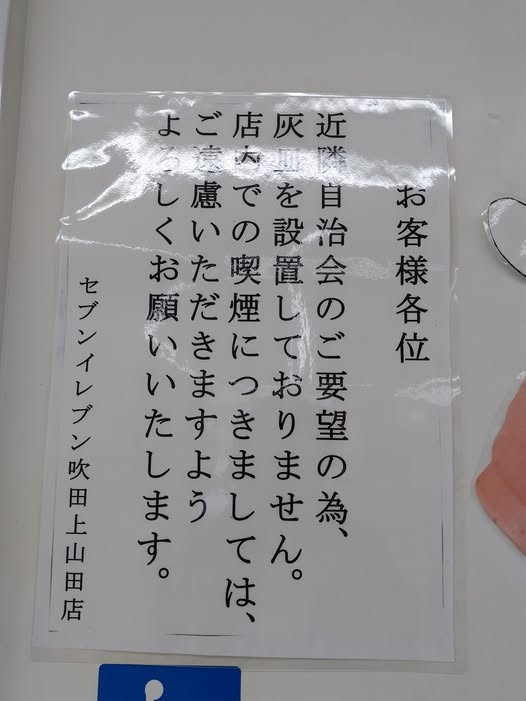 お客様各位
近隣自治会のご要望の為、
灰皿を設置しておりません。
店内での喫煙につきましては、
ご遠慮いただきますよう
よろしくお願いいたします。
セブンイレブン吹田上山田店